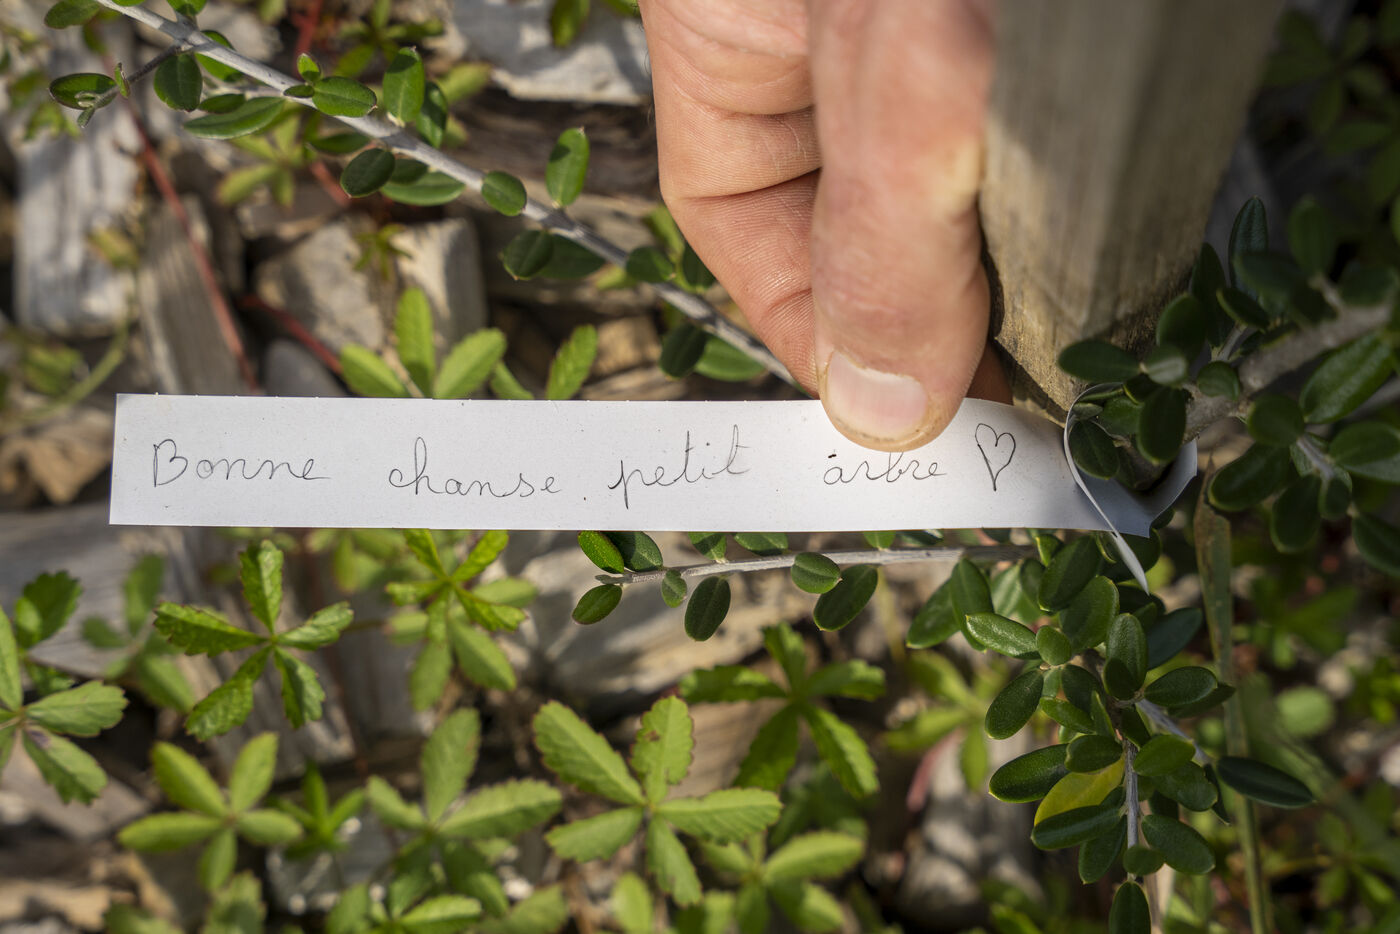 Bonne chanse petit arbre ♡